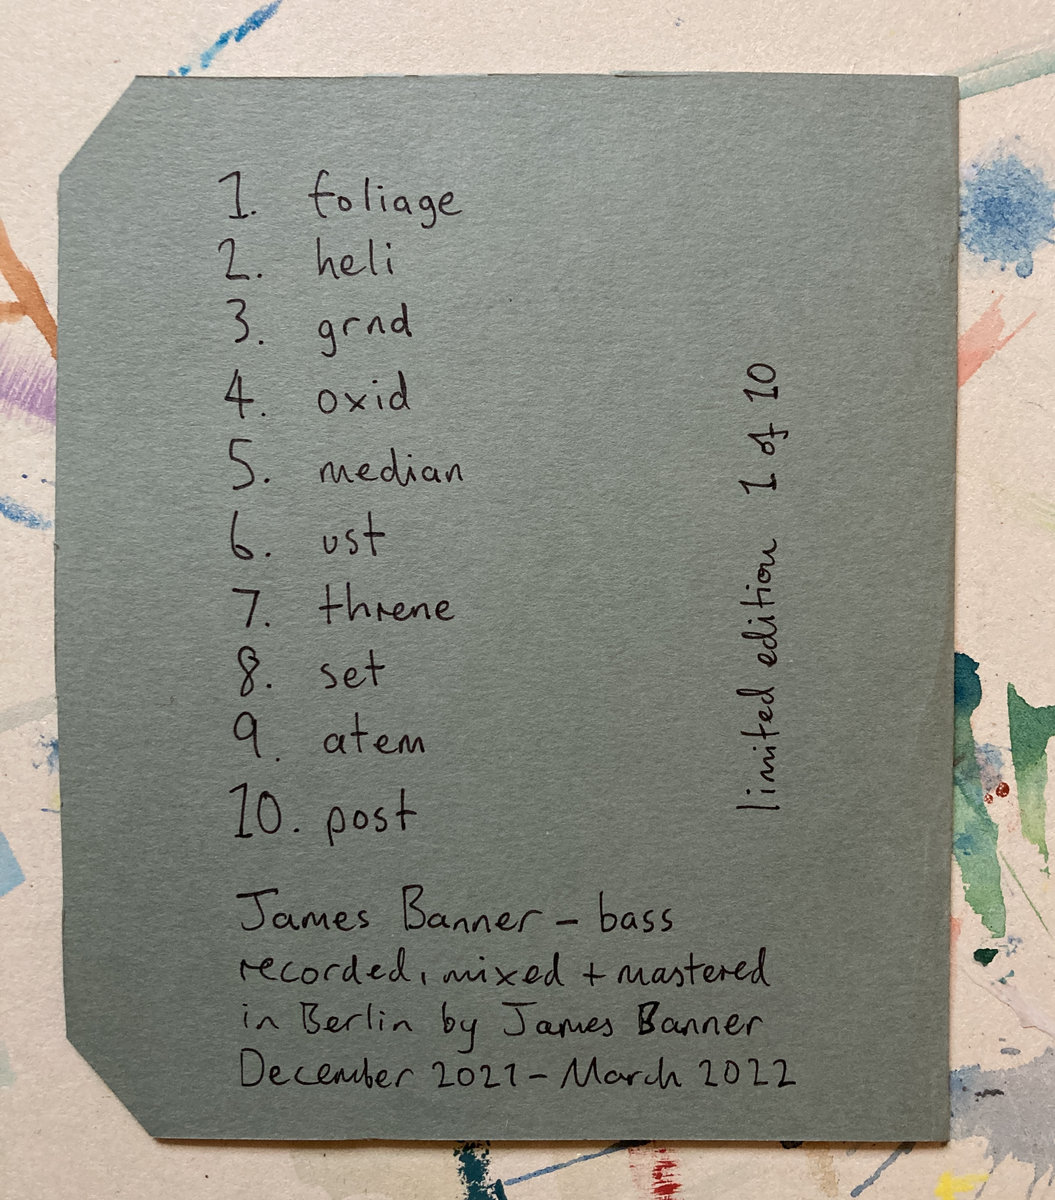 1. foliage
2. heli
3. grnd
4. oxid
5. median
6. ust
7. threne
8. set
9. atem
10. post
limited edition 1 of 10
James Banner – bass
recorded, mixed + mastered
in Berlin by James Banner
December 2021 – March 2022